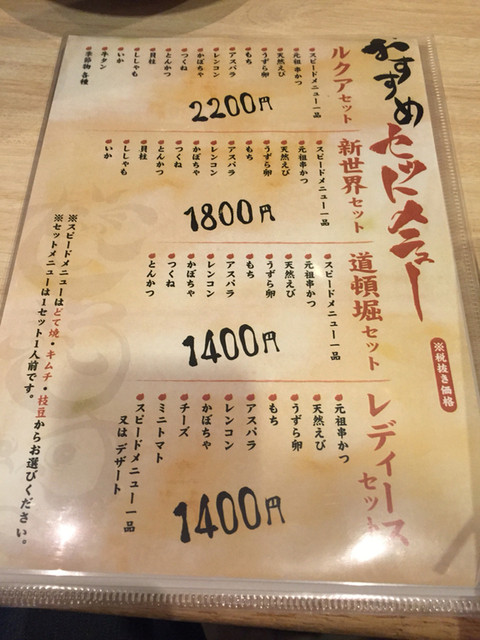 おすすめセットメニュー
※税抜き価格
ルクアセット
スピードメニュー一品
元祖串かつ
天然えび
うずら卵
もち
アスパラ
レンコン
かぼちゃ
つくね
とんかつ
貝柱
ししゃも
いか
牛タン
季節物各種
2200円
新世界セット
スピードメニュー一品
元祖串かつ
天然えび
うずら卵
もち
アスパラ
レンコン
かぼちゃ
つくね
とんかつ
貝柱
ししゃも
いか
1800円
道頓堀セット
スピードメニュー一品
元祖串かつ
天然えび
うずら卵
もち
アスパラ
レンコン
かぼちゃ
つくね
とんかつ
1400円
レディースセット
元祖串かつ
天然えび
うずら卵
もち
アスパラ
レンコン
かぼちゃ
チーズ
ミニトマト
スピードメニュー一品
又はデザート
1400円
※スピードメニューはどて焼・キムチ・枝豆からお選びください。
※セットメニューは1セット1人前です。